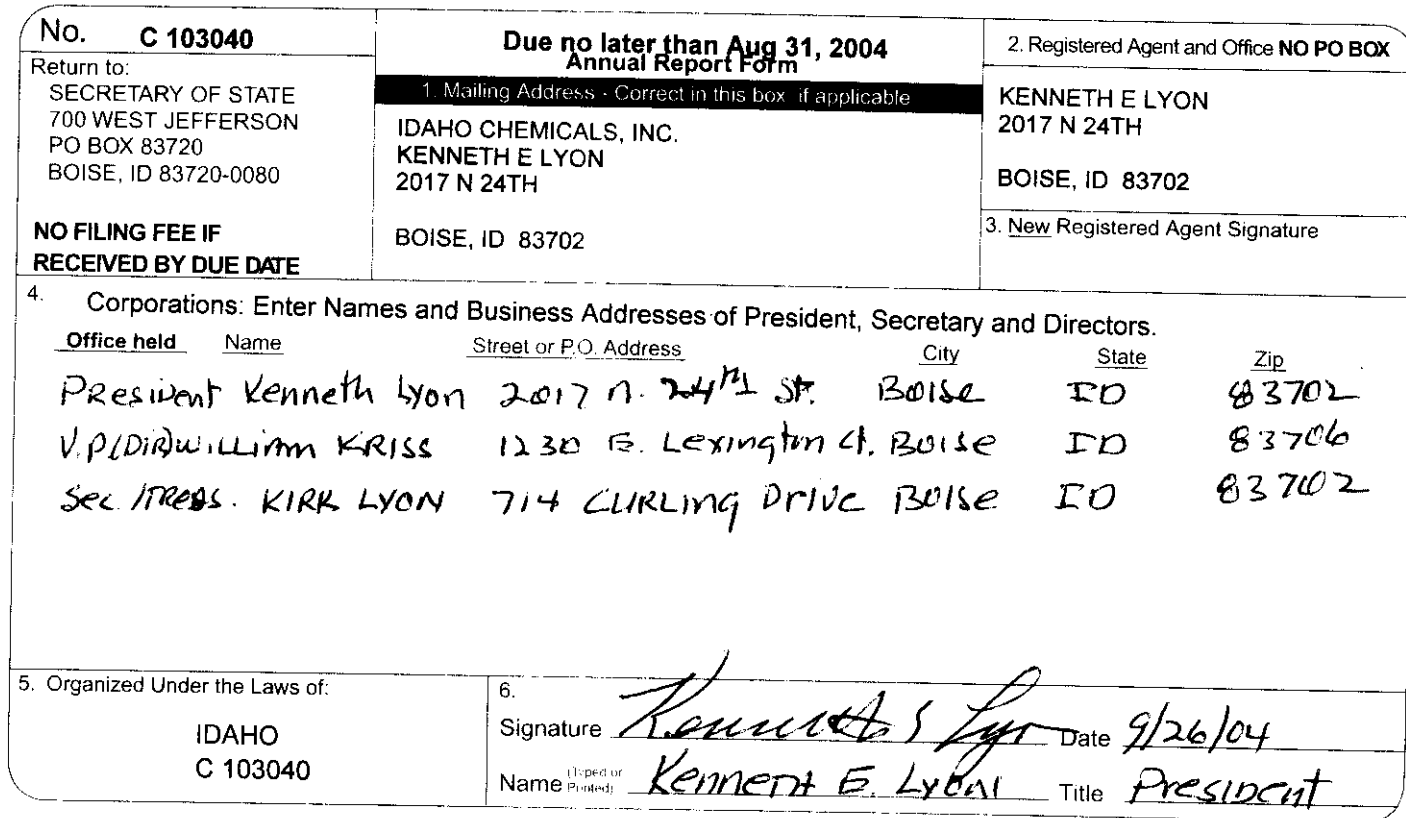 No. C 103040
Return to:
SECRETARY OF STATE
700 WEST JEFFERSON
PO BOX 83720
BOISE, ID 83720-0080
NO FILING FEE IF
RECEIVED BY DUE DATE
Due no later than Aug 31, 2004
Annual Report Form
1. Mailing Address - Correct in this box if applicable
IDAHO CHEMICALS, INC.
KENNETH E LYON
2017 N 24TH
BOISE, ID 83702
2. Registered Agent and Office NO PO BOX
KENNETH E LYON
2017 N 24TH
BOISE, ID 83702
3. New Registered Agent Signature
4. Corporations: Enter Names and Business Addresses of President, Secretary and Directors.
Office held Name Street or P.O. Address City State Zip
President Kenneth Lyon 2017 N. 24th St. Boise ID 83702
V.P(DiR) William KRISS 1230 E. Lexington Ct. Boise ID 83706
Sec/TREAS. KIRK LYON 714 CURLING Drive Boise ID 83702
5. Organized Under the Laws of:
IDAHO
C 103040
6.
Signature Kenneth E Lyon Date 9/26/04
Name (Typed or Printed) Kenneth E. Lyon Title President